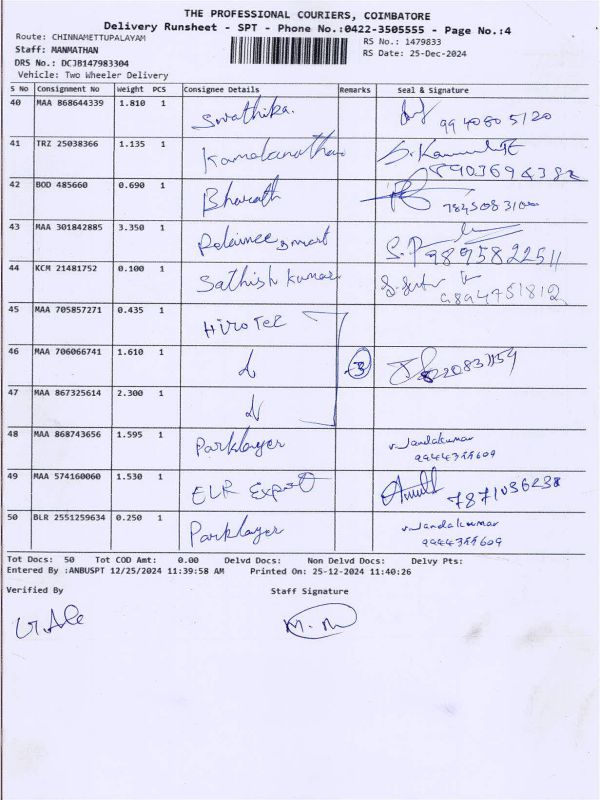 THE PROFESSIONAL COURIERS, COIMBATORE
Delivery Runsheet - SPT - Phone No.:0422-3505555 - Page No.:4
Route: CHINNAMETTUPALAYAM
RS No.: 1479833
Staff: MANMATHAN
RS Date: 25-Dec-2024
DRS No.: DCJB147983304
Vehicle: Two Wheeler Delivery
S No Consignment No Weight PCS Consignee Details Remarks Seal & Signature
40 MAA 868644339 1.810 1 Swathika. 99 40805120
41 TRZ 25038366 1.135 1 Kamalanathan 8903694382
42 BOD 485660 0.690 1 Bharath
43 MAA 301842885 3.350 1 smart S.P 9895822511
44 KCM 21481752 0.100 1 Sathish kumar 9894751812
45 MAA 705857271 0.435 1 Hirotec
46 MAA 706066741 1.610 1 3
47 MAA 867325614 2.300 1
48 MAA 868743656 1.595 1 Parklayer
49 MAA 574160060 1.530 1 ELR Export 7871036238
50 BLR 2551259634 0.250 1 Parklayer
Tot Docs: 50 Tot COD Amt: 0.00 Delvd Docs: Non Delvd Docs: Delvy Pts:
Entered By :ANBUSPT 12/25/2024 11:39:58 AM Printed On: 25-12-2024 11:40:26
Verified By Staff Signature
M. M